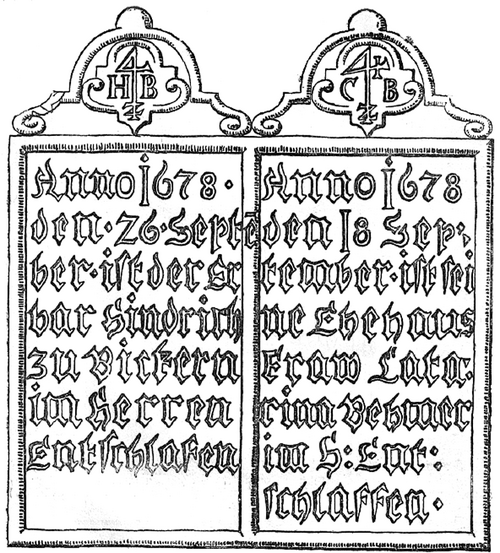 H B
Anno 1678 ·
den · 26 · Septē
ber · ist der Er
bar Hindrich
zu Bickern
im Herren
Entschlafen
C B
Anno 1678
den 18 Sep:
tember · ist sei
ne Ehehaus
Fraw Cata:
rina Behmer
im H: Ent:
schlaffen ·